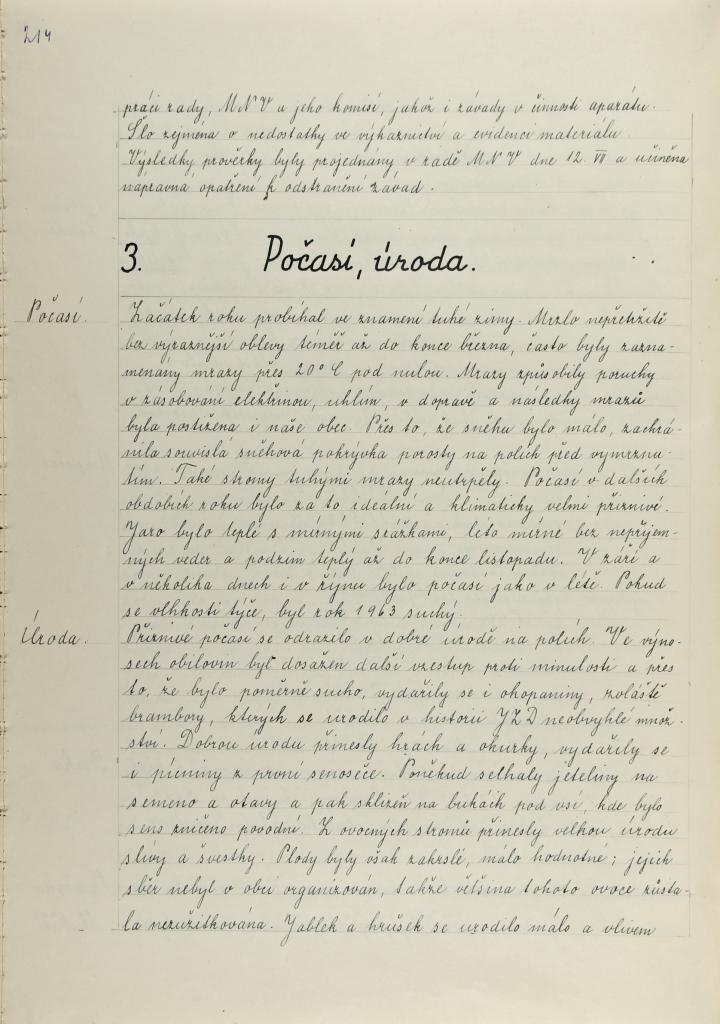 214
práci rady, MNV a jeho komisí, jakož i závady v činnosti aparátu.
Šlo zejména o nedostatky ve výkaznictví a evidenci materiálu.
Výsledky prověrky byly projednány v radě MNV dne 12. VII a učiněna
nápravná opatření k odstranění závad.
3. Počasí, úroda.
Počasí.
Začátek roku probíhal ve znamení tuhé zimy. Mrzlo nepřetržitě
bez výraznější oblevy téměř až do konce března, často byly zazna-
menány mrazy přes 20° C pod nulou. Mrazy způsobily poruchy
v zásobování elektřinou, uhlím, v dopravě a následky mrazů
byla postižena i naše obec. Přes to, že sněhu bylo málo, zachrá-
nila souvislá sněhová pokrývka porosty na polích před vymrznu-
tím. Také stromy tuhými mrazy neutrpěly. Počasí v dalších
obdobích roku bylo za to ideální a klimaticky velmi příznivé.
Jaro bylo teplé s mírnými srážkami, léto mírné bez nepříjem-
ných veder a podzim teplý až do konce listopadu. V září a
v několika dnech i v říjnu bylo počasí jako v létě. Pokud
se vlhkosti týče, byl rok 1963 suchý.
Úroda.
Příznivé počasí se odrazilo v dobré úrodě na polích. Ve výno-
sech obilovin byl dosažen další vzestup proti minulosti a přes
to, že bylo poměrně sucho, vydařily se i okopaniny, zvláště
brambory, kterých se urodilo v historii JZD neobvyklé množ-
ství. Dobrou úrodu přinesly hrách a okurky, vydařily se
i pícniny z první senoseče. Poněkud selhaly jeteliny na
semeno a otavy a pak sklizeň na lukách pod vsí, kde bylo
seno zničeno povodní. Z ovocných stromů přinesly velkou úrodu
slívy a švestky. Plody byly však zakrslé, málo hodnotné; jejich
sběr nebyl v obci organizován, takže většina tohoto ovoce zůsta-
la nezužitkována. Jablek a hrušek se urodilo málo a vlivem